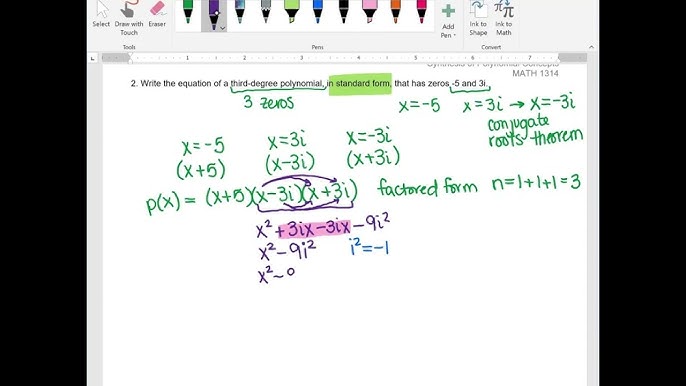 Select Draw with Touch Eraser Add Pen Ink to Shape Ink to Math
Tools Pens Convert
Synthesis of Polynomial Concepts
MATH 1314
2. Write the equation of a third-degree polynomial, in standard form, that has zeros -5 and 3i.
3 zeros x=-5 x=3i → x=-3i
conjugate
roots theorem
x=-5 x=3i x=-3i
(x+5) (x-3i) (x+3i)
p(x) = (x+5)(x-3i)(x+3i) factored form n=1+1+1=3
x²+3ix-3ix-9i²
x²-9i² i²=-1
x²-